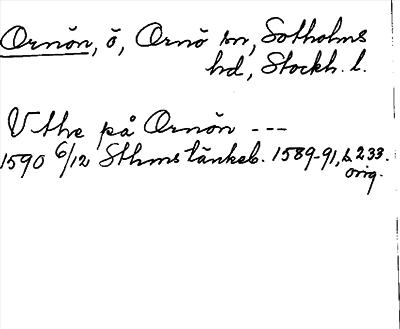 Ornön, ö, Ornö sn, Sotholms
hd, Stockh. l.
Vthe på Ornön ---
1590 6/12 Sthms tänkeb. 1589-91, s. 233.
orig.